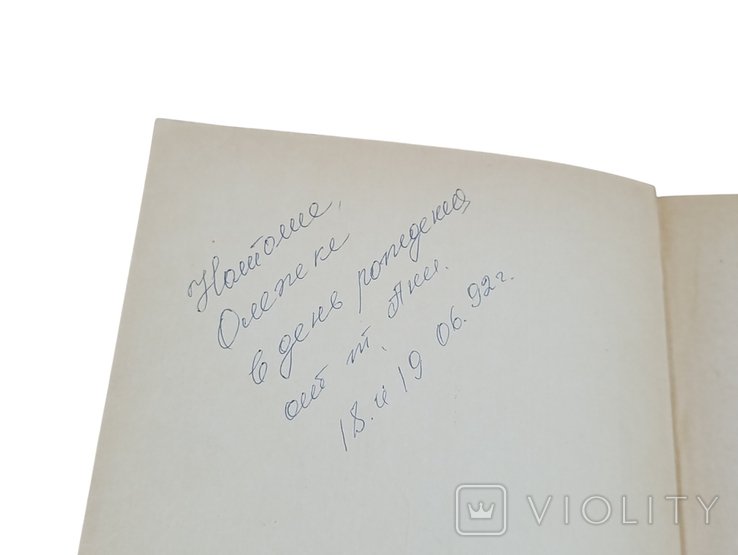 Наташе,
Олежке
в день рождения
от т. Ани.
18. и 19 06.92г.
VIOLITY